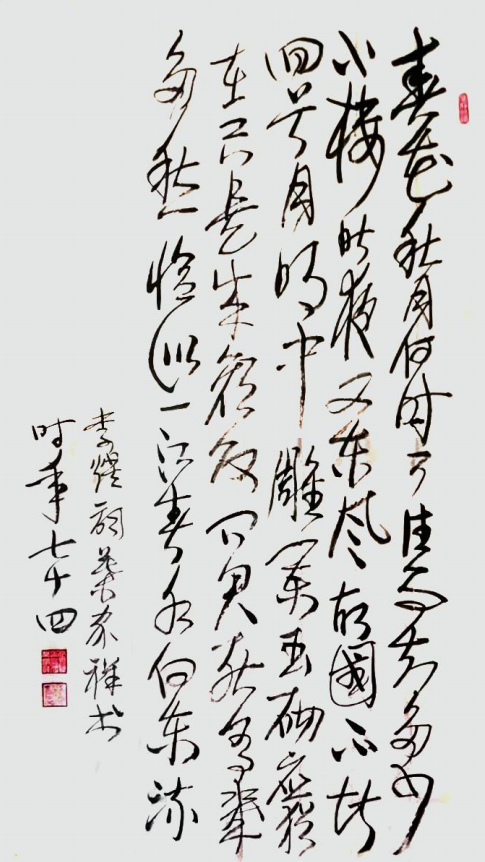 春花秋月何时了往事知多少
小楼昨夜又东风故國不堪
回首月明中雕阑玉砌應犹
在只是朱颜改问君能有幾
多愁恰似一江春水向东流
李煜词葉家祥书
时年七十四